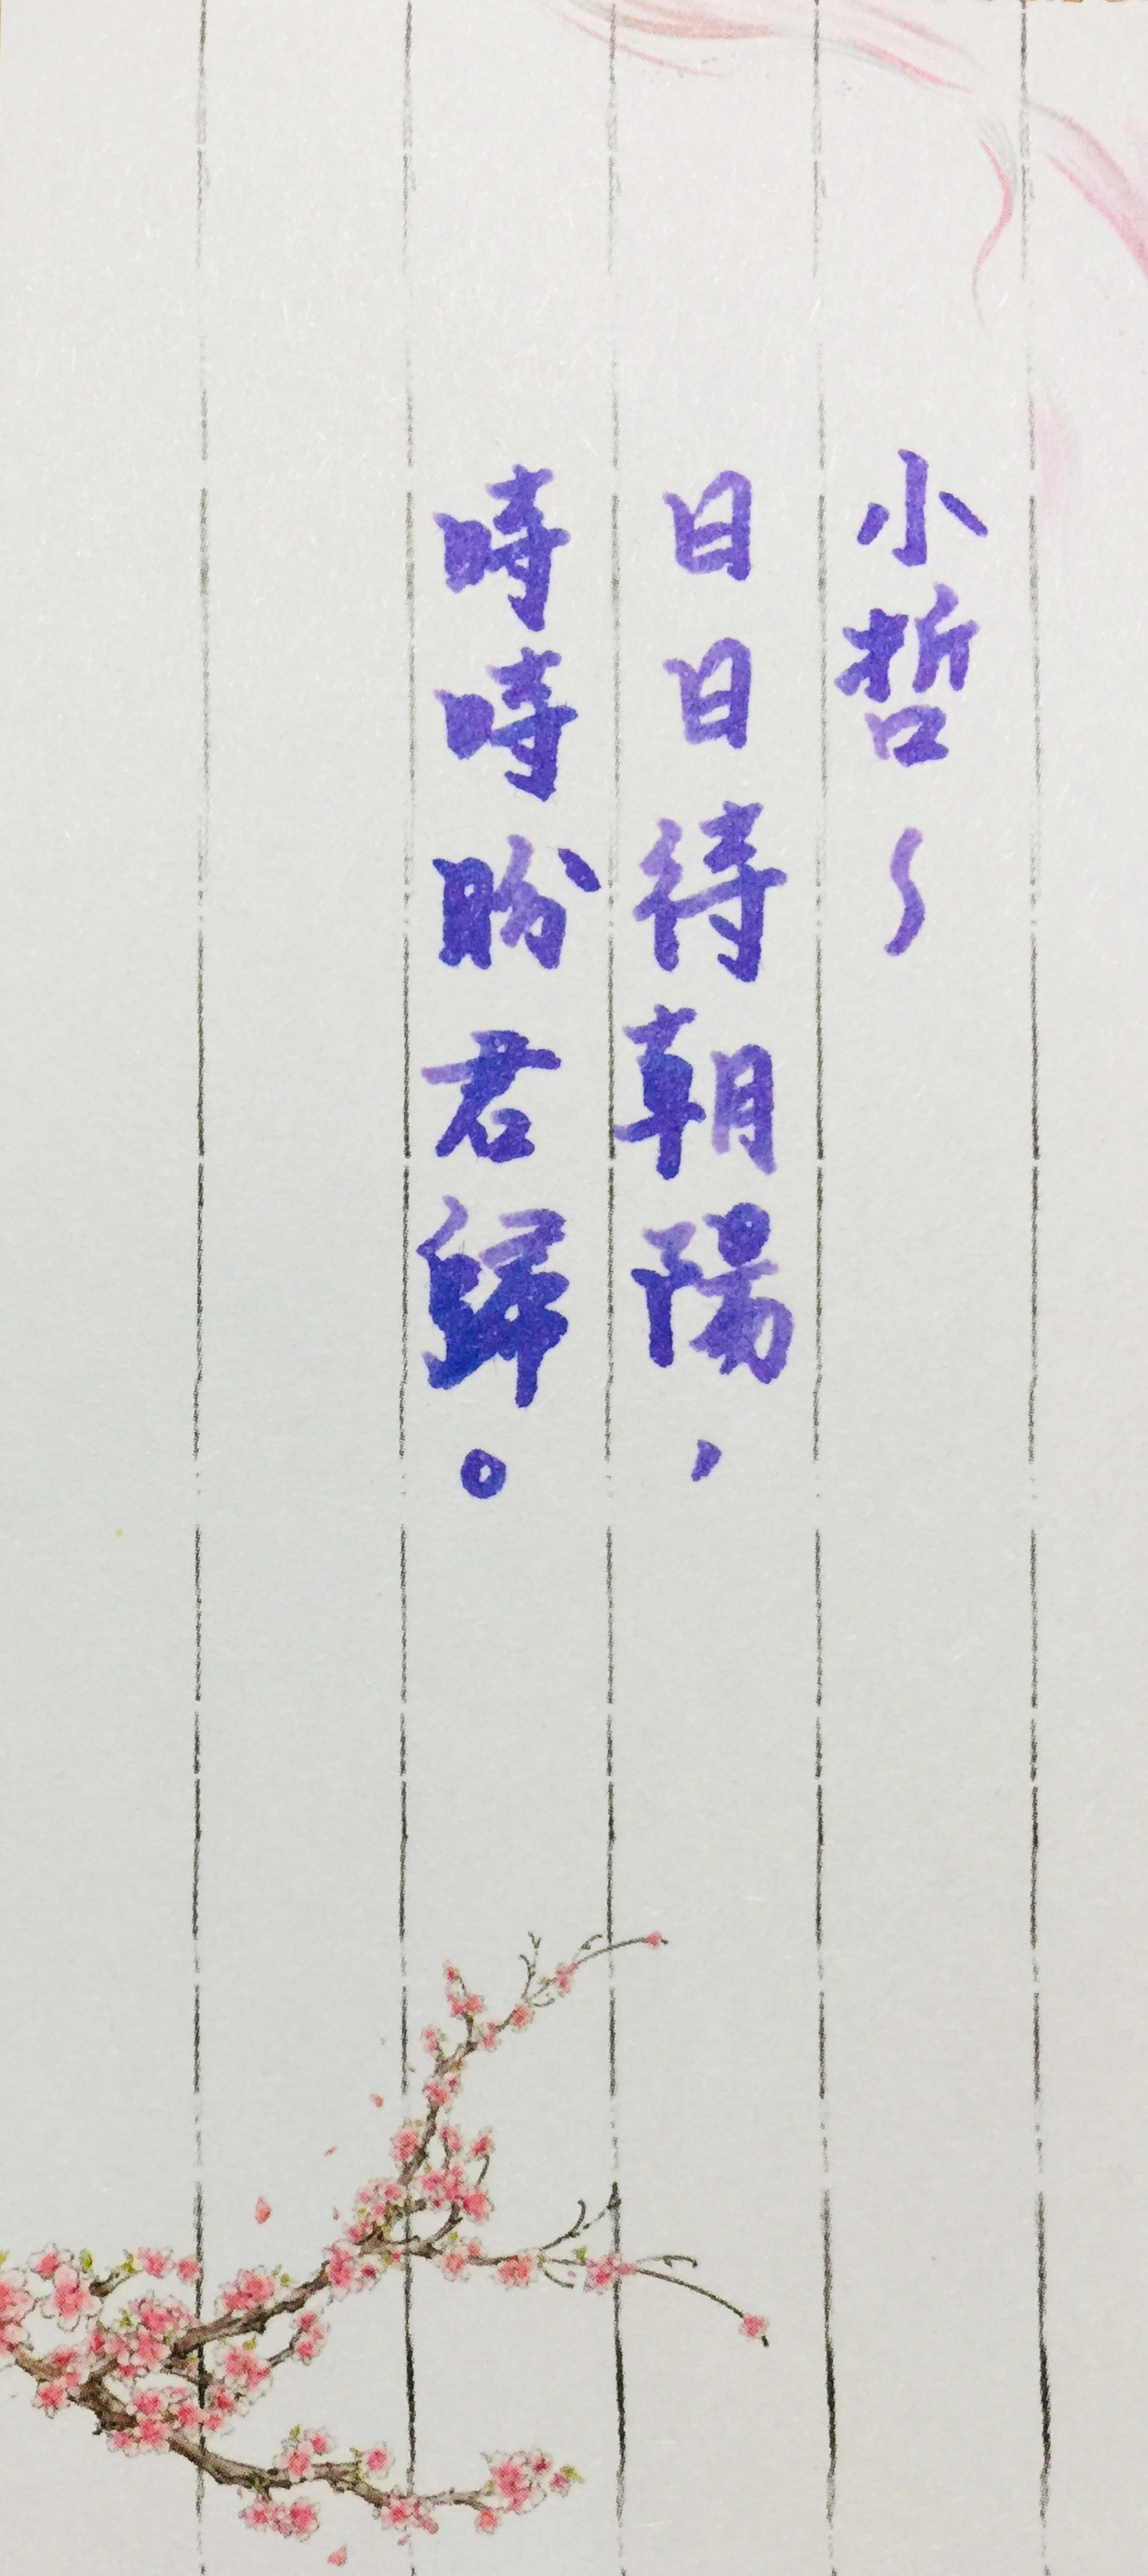 小哲～
日日待朝陽，
時時盼君歸。